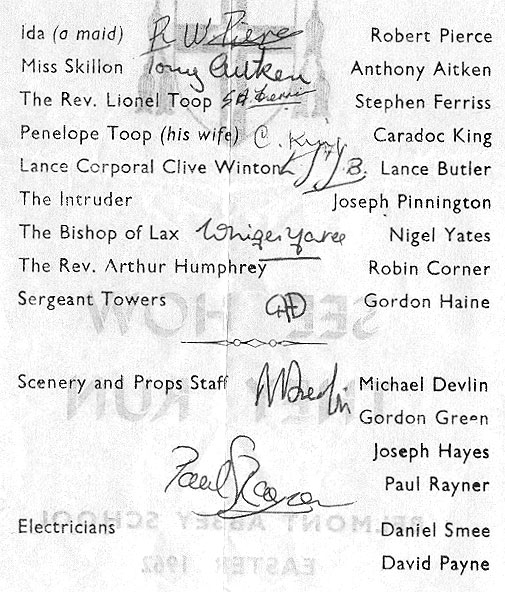 Ida (a maid) R W Pierce Robert Pierce
Miss Skillon Tony Aitken Anthony Aitken
The Rev. Lionel Toop Stephen Ferriss
Penelope Toop (his wife) C. King Caradoc King
Lance Corporal Clive Winton B. Lance Butler
The Intruder Joseph Pinnington
The Bishop of Lax Nigel Yates
The Rev. Arthur Humphrey Robin Corner
Sergeant Towers Gordon Haine
Scenery and Props Staff M Devlin Michael Devlin
Gordon Green
Joseph Hayes
Paul Rayner Paul Rayner
Electricians Daniel Smee
David Payne
SEE HOW
THEY RUN
BELMONT ABBEY SCHOOL
EASTER 1962